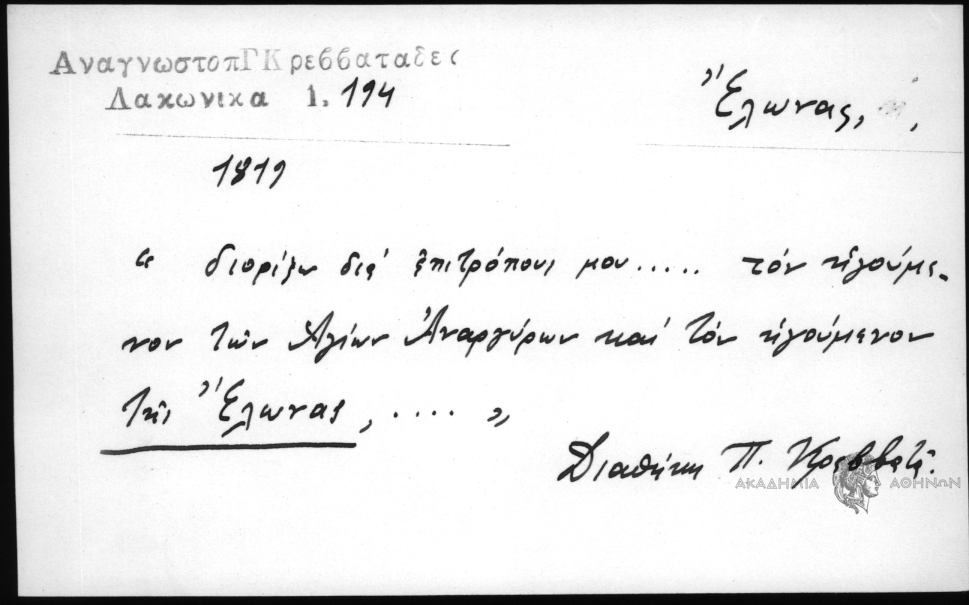 ΑναγνωστοπΓΚρεββαταδες
Λακωνικα 1. 194
Ἔλωνας,
1819
“ διορίζω διὰ ἐπιτρόπους μου..... τόν ἡγούμε-
νον τῶν Ἁγίων Ἀναργύρων καί τόν ἡγούμενον
τῆς Ἔλωνας, .... „
Διαθήκη Π. Κρεββατᾶ.
ΑΚΑΔΗΜΙΑ ΑΘΗΝΩΝ